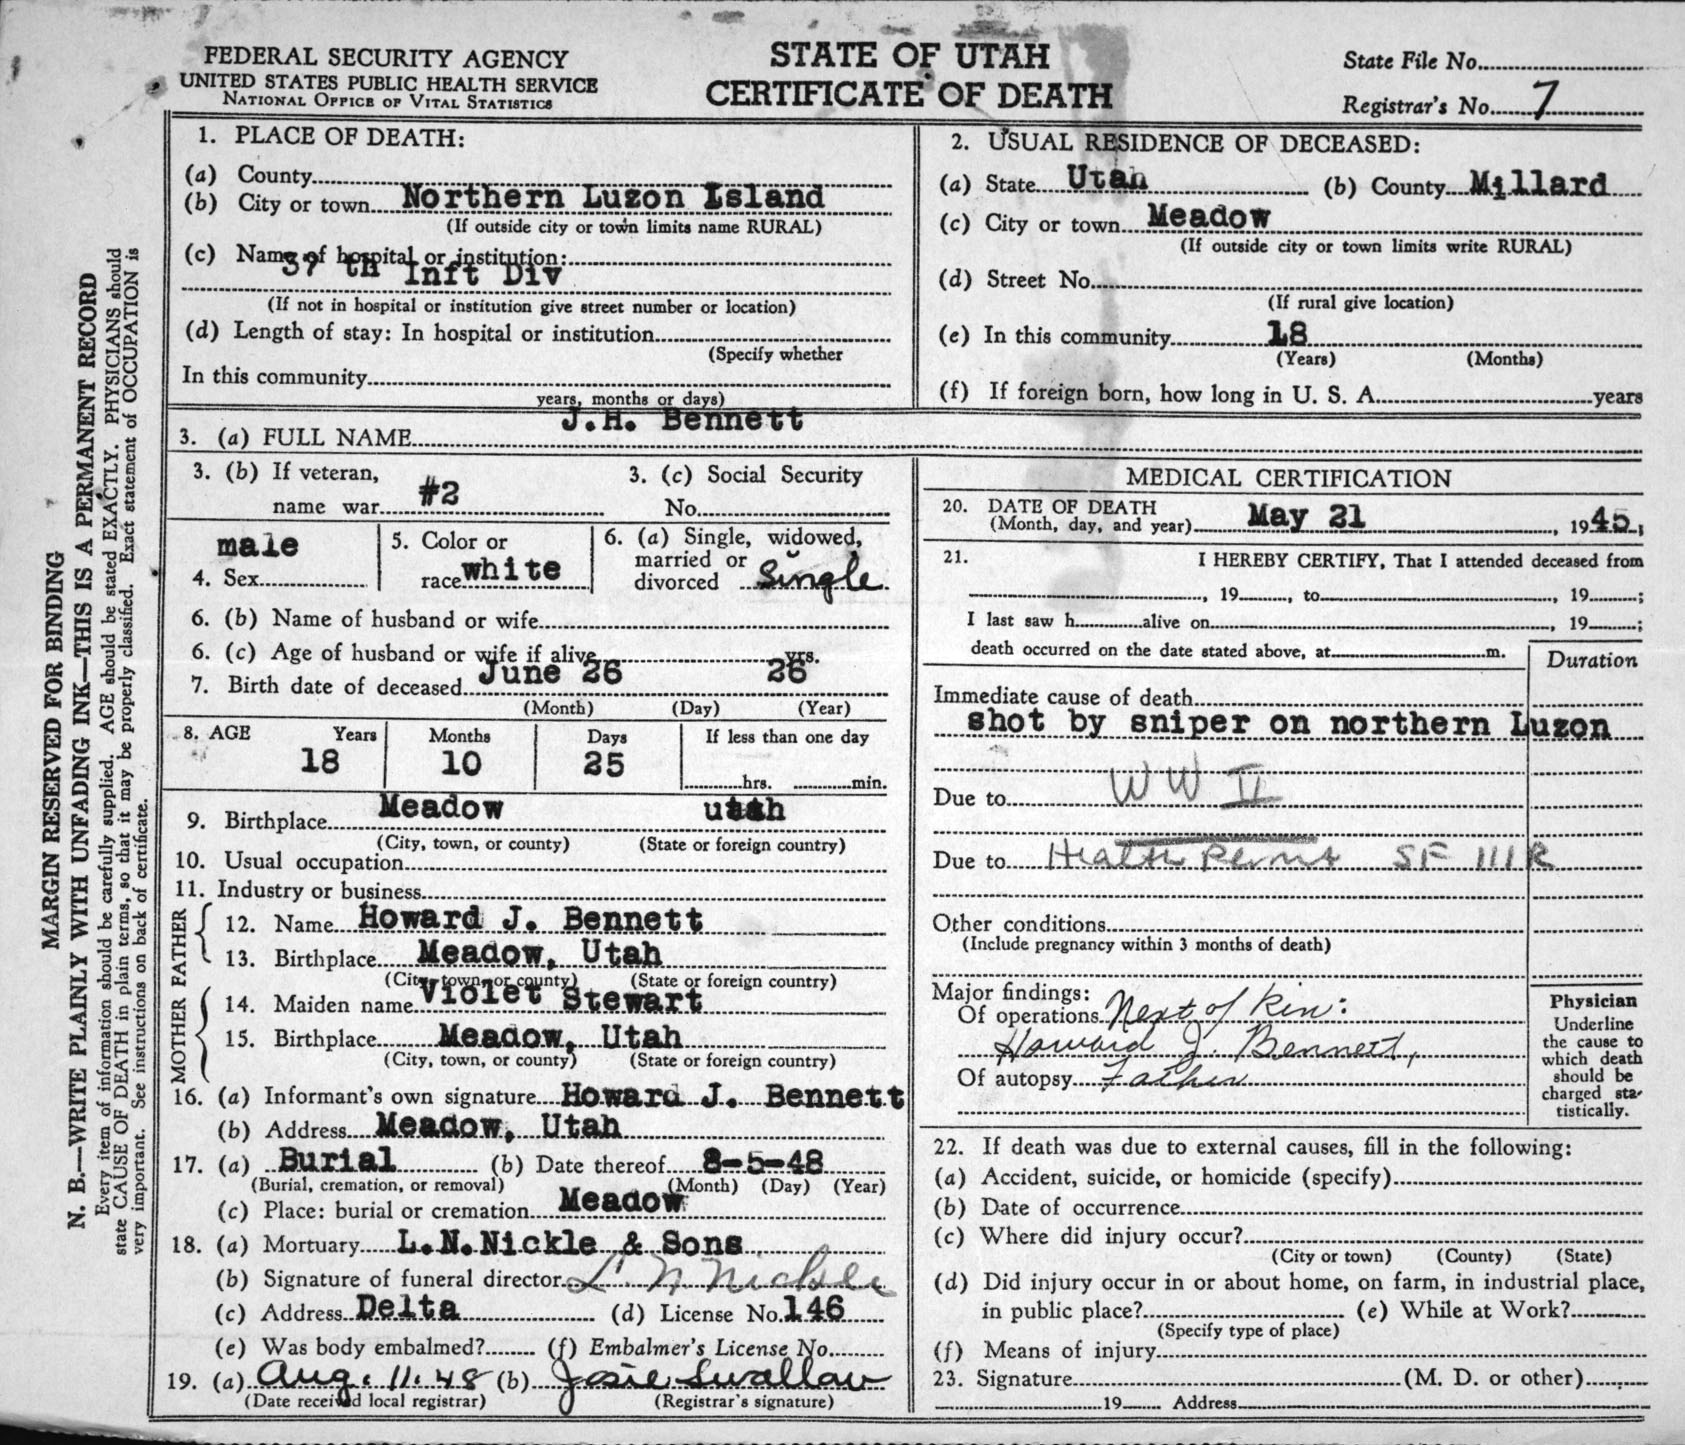 FEDERAL SECURITY AGENCY
UNITED STATES PUBLIC HEALTH SERVICE
NATIONAL OFFICE OF VITAL STATISTICS
STATE OF UTAH
CERTIFICATE OF DEATH
State File No.
Registrar's No. 7
MARGIN RESERVED FOR BINDING
N. B.—WRITE PLAINLY WITH UNFADING INK—THIS IS A PERMANENT RECORD
Every item of information should be carefully supplied. AGE should be stated EXACTLY. PHYSICIANS should
state CAUSE OF DEATH in plain terms, so that it may be properly classified. Exact statement of OCCUPATION is
very important. See instructions on back of certificate.
1. PLACE OF DEATH:
(a) County
(b) City or town Northern Luzon Island
(If outside city or town limits name RURAL)
(c) Name of hospital or institution:
37 th Inft Div
(If not in hospital or institution give street number or location)
(d) Length of stay: In hospital or institution
(Specify whether
In this community
years, months or days)
2. USUAL RESIDENCE OF DECEASED:
(a) State Utah (b) County Millard
(c) City or town Meadow
(If outside city or town limits write RURAL)
(d) Street No.
(If rural give location)
(e) In this community 18
(Years) (Months)
(f) If foreign born, how long in U. S. A. years
3. (a) FULL NAME J.H. Bennett
3. (b) If veteran,
name war #2
3. (c) Social Security
No.
4. Sex male
5. Color or
race white
6. (a) Single, widowed,
married or
divorced Single
6. (b) Name of husband or wife
6. (c) Age of husband or wife if alive yrs.
7. Birth date of deceased June 26 26
(Month) (Day) (Year)
8. AGE Years Months Days If less than one day
18 10 25 hrs. min.
9. Birthplace Meadow utah
(City, town, or county) (State or foreign country)
10. Usual occupation
11. Industry or business
FATHER
12. Name Howard J. Bennett
13. Birthplace Meadow, Utah
(City, town, or county) (State or foreign country)
MOTHER
14. Maiden name Violet Stewart
15. Birthplace Meadow, Utah
(City, town, or county) (State or foreign country)
16. (a) Informant's own signature Howard J. Bennett
(b) Address Meadow, Utah
17. (a) Burial (b) Date thereof 8-5-48
(Burial, cremation, or removal) (Month) (Day) (Year)
(c) Place: burial or cremation Meadow
18. (a) Mortuary L.N.Nickle & Sons
(b) Signature of funeral director L. N Nickle
(c) Address Delta (d) License No. 146
(e) Was body embalmed? (f) Embalmer's License No.
19. (a) Aug. 11. 48 (b) Josie Swallow
(Date received local registrar) (Registrar's signature)
MEDICAL CERTIFICATION
20. DATE OF DEATH
(Month, day, and year) May 21, 1945;
21. I HEREBY CERTIFY, That I attended deceased from
, 19, to , 19;
I last saw h alive on , 19;
death occurred on the date stated above, at m.
Duration
Immediate cause of death
shot by sniper on northern Luzon
Due to WW II
Due to Health Permit SF 111R
Other conditions
(Include pregnancy within 3 months of death)
Major findings:
Of operations Next of Kin:
Howard J. Bennett,
Of autopsy Father
Physician
Underline
the cause to
which death
should be
charged sta-
tistically.
22. If death was due to external causes, fill in the following:
(a) Accident, suicide, or homicide (specify)
(b) Date of occurrence
(c) Where did injury occur?
(City or town) (County) (State)
(d) Did injury occur in or about home, on farm, in industrial place,
in public place? (e) While at Work?
(Specify type of place)
(f) Means of injury
23. Signature (M. D. or other)
19 Address